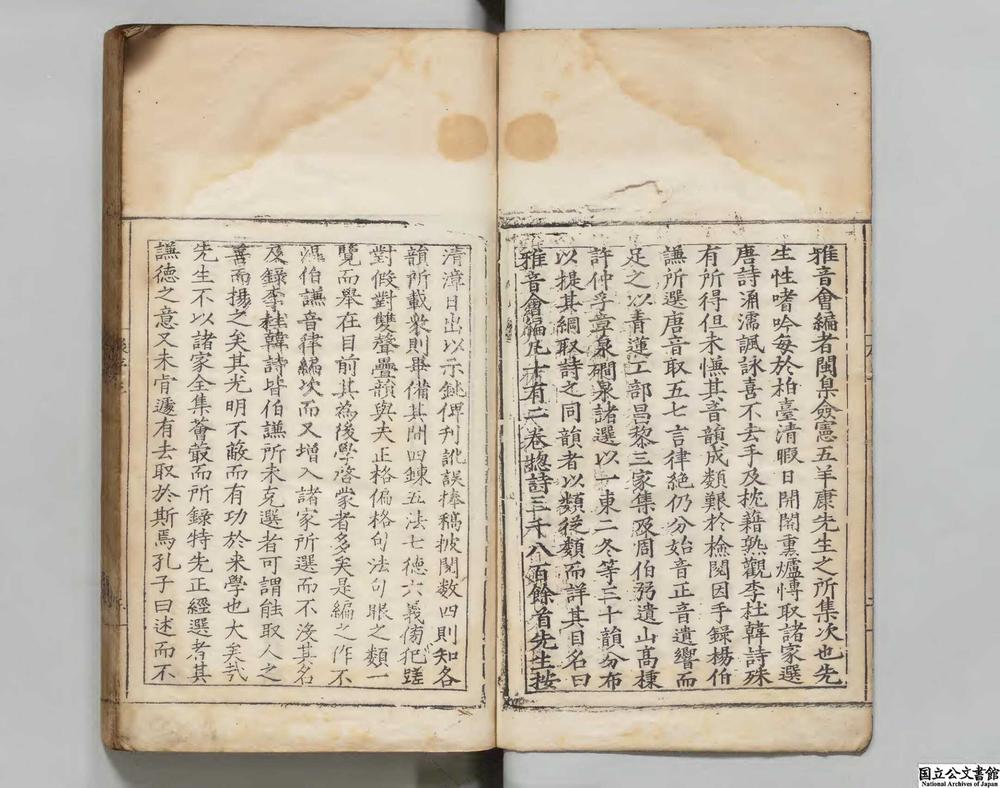 雅音會編者閩臬僉憲五羊康先生之所集次也先
生性嗜吟每於柏臺清暇日開閤熏爐博取諸家選
唐詩涵濡諷詠喜不去手及枕藉熟觀李杜韓詩殊
有所得但未愜其音韻成類艱於檢閱因手錄楊伯
謙所選唐音取五七言律絶仍分始音正音遺響而
足之以青蓮工部昌黎三家集及周伯弜遺山高棅
許仲孚章泉磵泉諸選以一東二冬等三十韻分布
以提其綱取詩之同韻者以類從類而詳其目名曰
雅音會編凡十有二卷總詩三千八百餘首先生按
清漳日出以示銑俾刊訛誤捧稿披閱数四則知各
韻所載衆則畢備其間四鍊五法七德六義俯犯蹉
對假對雙聲疊韻與夫正格偏格句法句眼之類一
覽而舉在目前其為後學啓蒙者多矣是編之作不
混伯謙音律編次而又增入諸家所選而不沒其名
及錄李杜韓詩皆伯謙所未克選者可謂能取人之
善而揚之矣其光明不蔽而有功於来學也大矣㢤
先生不以諸家全集薈蕞而所録特先正經選者其
謙德之意又未肯遽有去取於斯焉孔子曰述而不
国立公文書館
National Archives of Japan